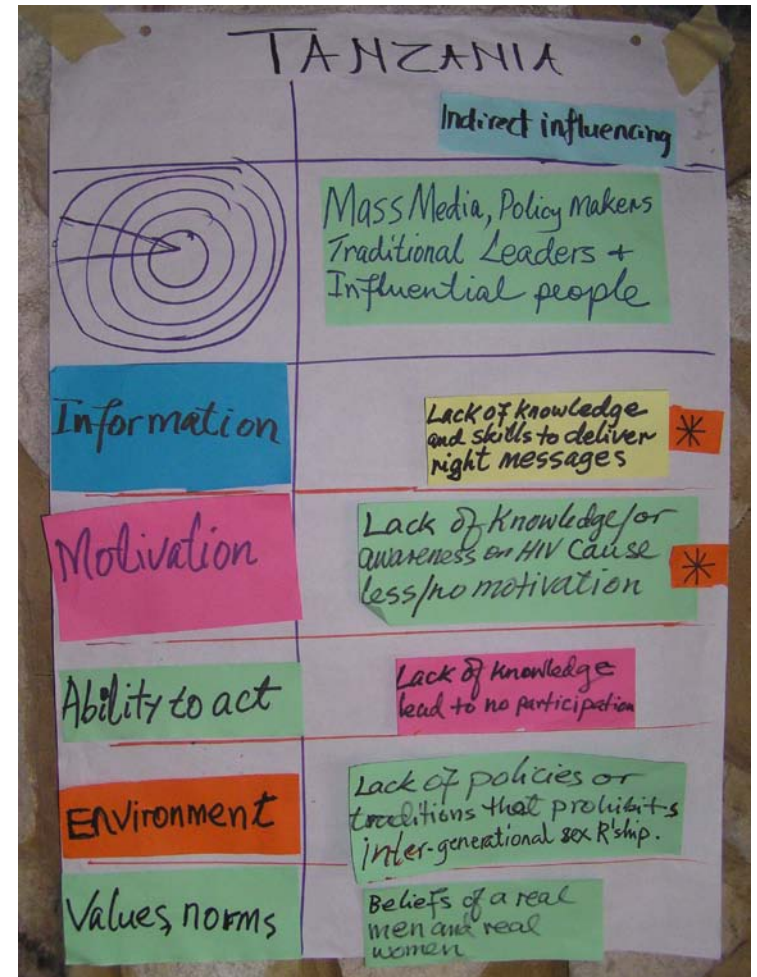 TANZANIA
Indirect influencing
Mass Media, Policy Makers
Traditional Leaders +
Influential people
Information
Lack of knowledge
and skills to deliver
right messages
*
Motivation
Lack of Knowledge/or
awareness on HIV Cause
less/no motivation
*
Ability to act
Lack of Knowledge
lead to no participation
Environment
Lack of policies or
traditions that prohibits
inter-generational sex R'ship.
Values, norms
Beliefs of a real
men and real
women